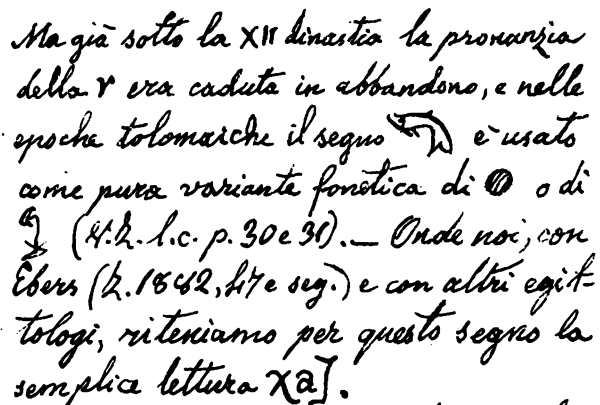 Ma già sotto la XII dinastia la pronunzia
della r era caduta in abbandono, e nelle
epoche tolomaiche il segno è usato
come pura variante fonetica di o di
l.c. p. 30 e 31). — Onde noi, con
Ebers e seg.) e con altri egit-
tologi, riteniamo per questo segno la
semplice lettura χa].